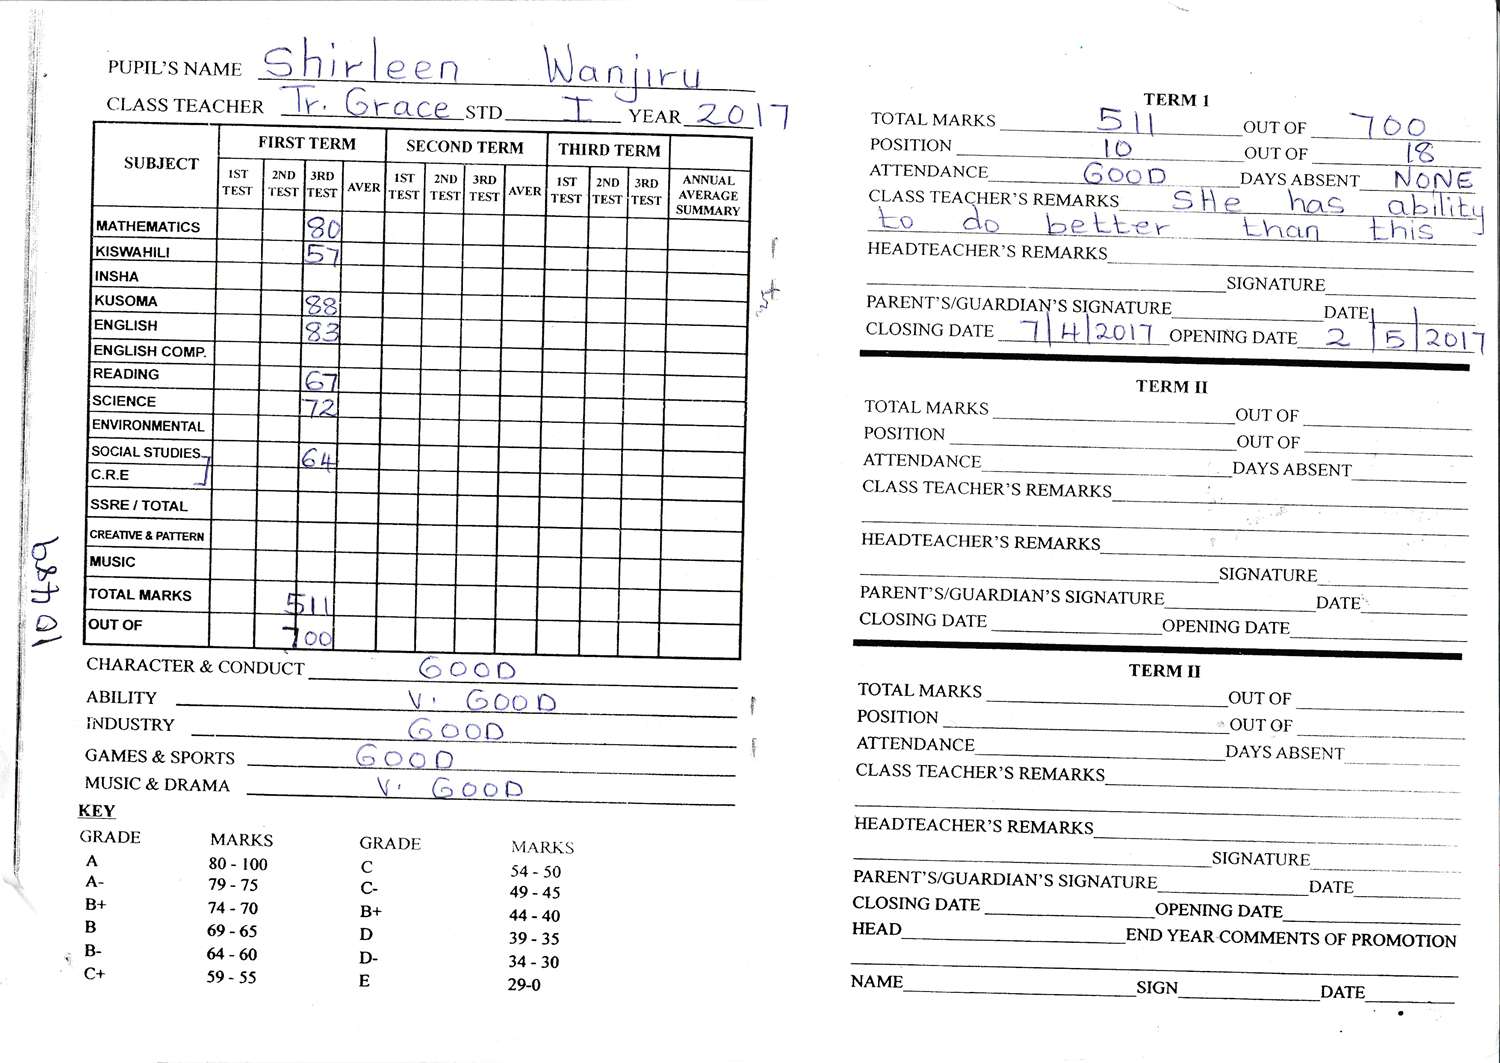 PUPIL'S NAME Shirleen Wanjiru
CLASS TEACHER Tr. Grace STD I YEAR 2017
SUBJECT FIRST TERM SECOND TERM THIRD TERM
1ST TEST 2ND TEST 3RD TEST AVER 1ST TEST 2ND TEST 3RD TEST AVER 1ST TEST 2ND TEST 3RD TEST ANNUAL AVERAGE SUMMARY
MATHEMATICS 80
KISWAHILI 57
INSHA
KUSOMA 88
ENGLISH 83
ENGLISH COMP.
READING 67
SCIENCE 72
ENVIRONMENTAL
SOCIAL STUDIES 64
C.R.E
SSRE / TOTAL
CREATIVE & PATTERN
MUSIC
TOTAL MARKS 511
OUT OF 700
CHARACTER & CONDUCT GOOD
ABILITY V. GOOD
INDUSTRY GOOD
GAMES & SPORTS GOOD
MUSIC & DRAMA V. GOOD
KEY
GRADE MARKS GRADE MARKS
A 80 - 100 C 54 - 50
A- 79 - 75 C- 49 - 45
B+ 74 - 70 B+ 44 - 40
B 69 - 65 D 39 - 35
B- 64 - 60 D- 34 - 30
C+ 59 - 55 E 29-0
TERM 1
TOTAL MARKS 511 OUT OF 700
POSITION 10 OUT OF 18
ATTENDANCE GOOD DAYS ABSENT NONE
CLASS TEACHER'S REMARKS SHe has ability
to do better than this
HEADTEACHER'S REMARKS
SIGNATURE
PARENT'S/GUARDIAN'S SIGNATURE DATE
CLOSING DATE 7/4/2017 OPENING DATE 2/5/2017
TERM II
TOTAL MARKS OUT OF
POSITION OUT OF
ATTENDANCE DAYS ABSENT
CLASS TEACHER'S REMARKS
HEADTEACHER'S REMARKS
SIGNATURE
PARENT'S/GUARDIAN'S SIGNATURE DATE
CLOSING DATE OPENING DATE
TERM II
TOTAL MARKS OUT OF
POSITION OUT OF
ATTENDANCE DAYS ABSENT
CLASS TEACHER'S REMARKS
HEADTEACHER'S REMARKS
SIGNATURE
PARENT'S/GUARDIAN'S SIGNATURE DATE
CLOSING DATE OPENING DATE
HEAD END YEAR COMMENTS OF PROMOTION
NAME SIGN DATE